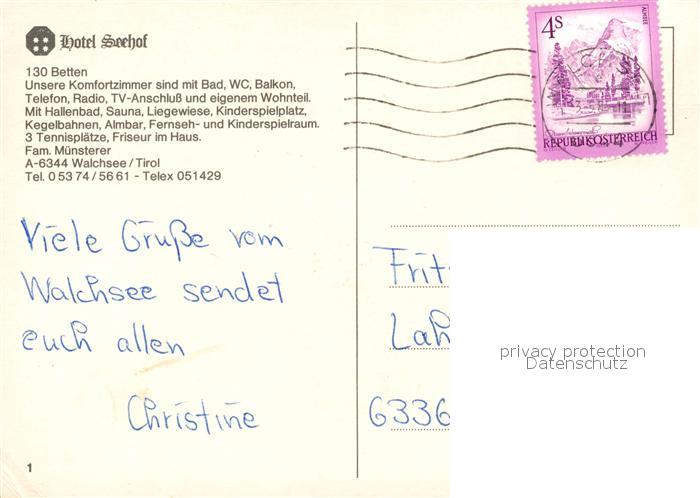 Hotel Seehof
130 Betten
Unsere Komfortzimmer sind mit Bad, WC, Balkon,
Telefon, Radio, TV-Anschluß und eigenem Wohnteil.
Mit Hallenbad, Sauna, Liegewiese, Kinderspielplatz,
Kegelbahnen, Almbar, Fernseh- und Kinderspielraum.
3 Tennisplätze, Friseur im Haus.
Fam. Münsterer
A-6344 Walchsee/Tirol
Tel. 0 53 74 / 56 61 - Telex 051429
Viele Grüße vom
Walchsee sendet
euch allen
Christine
1
4 S
ALMSEE
REPUBLIK ÖSTERREICH
Frit
Lah
6336
privacy protection
Datenschutz